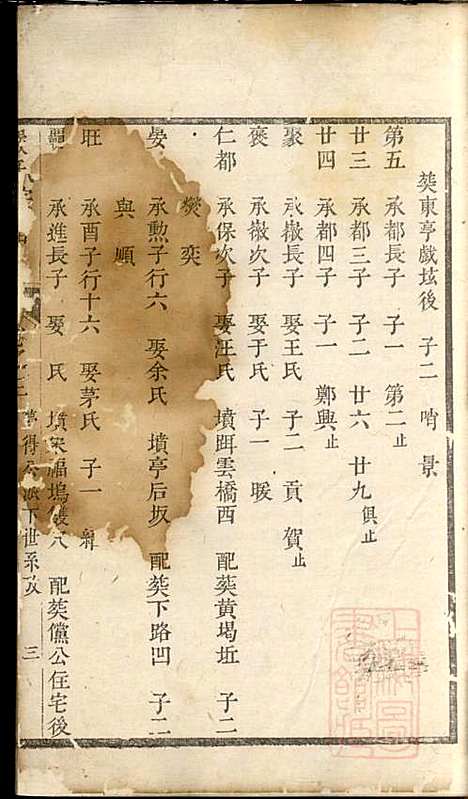 葬東亭戲坛後 子二 時景
第五 承都長子 子一 第二止
廿三 承都三子 子二 廿六 廿九俱止
廿四 承都四子 子一 鄭興止
聚 承嶽長子 娶王氏 子二 貢 賀止
褒 承嶽次子 娶于氏 子一 暖
仁都 承保次子 娶汪氏 墳跙雲橋西 配葬黄堨坵 子二
燓 奕
晏 承勲子行六 娶余氏 墳亭后坂 配葬下路凹 子二
與 順
旺 承酉子行十六 娶茅氏 子一
承進長子 娶 氏 墳宋福塢 配葬儻公住宅後
得 派下世系
三